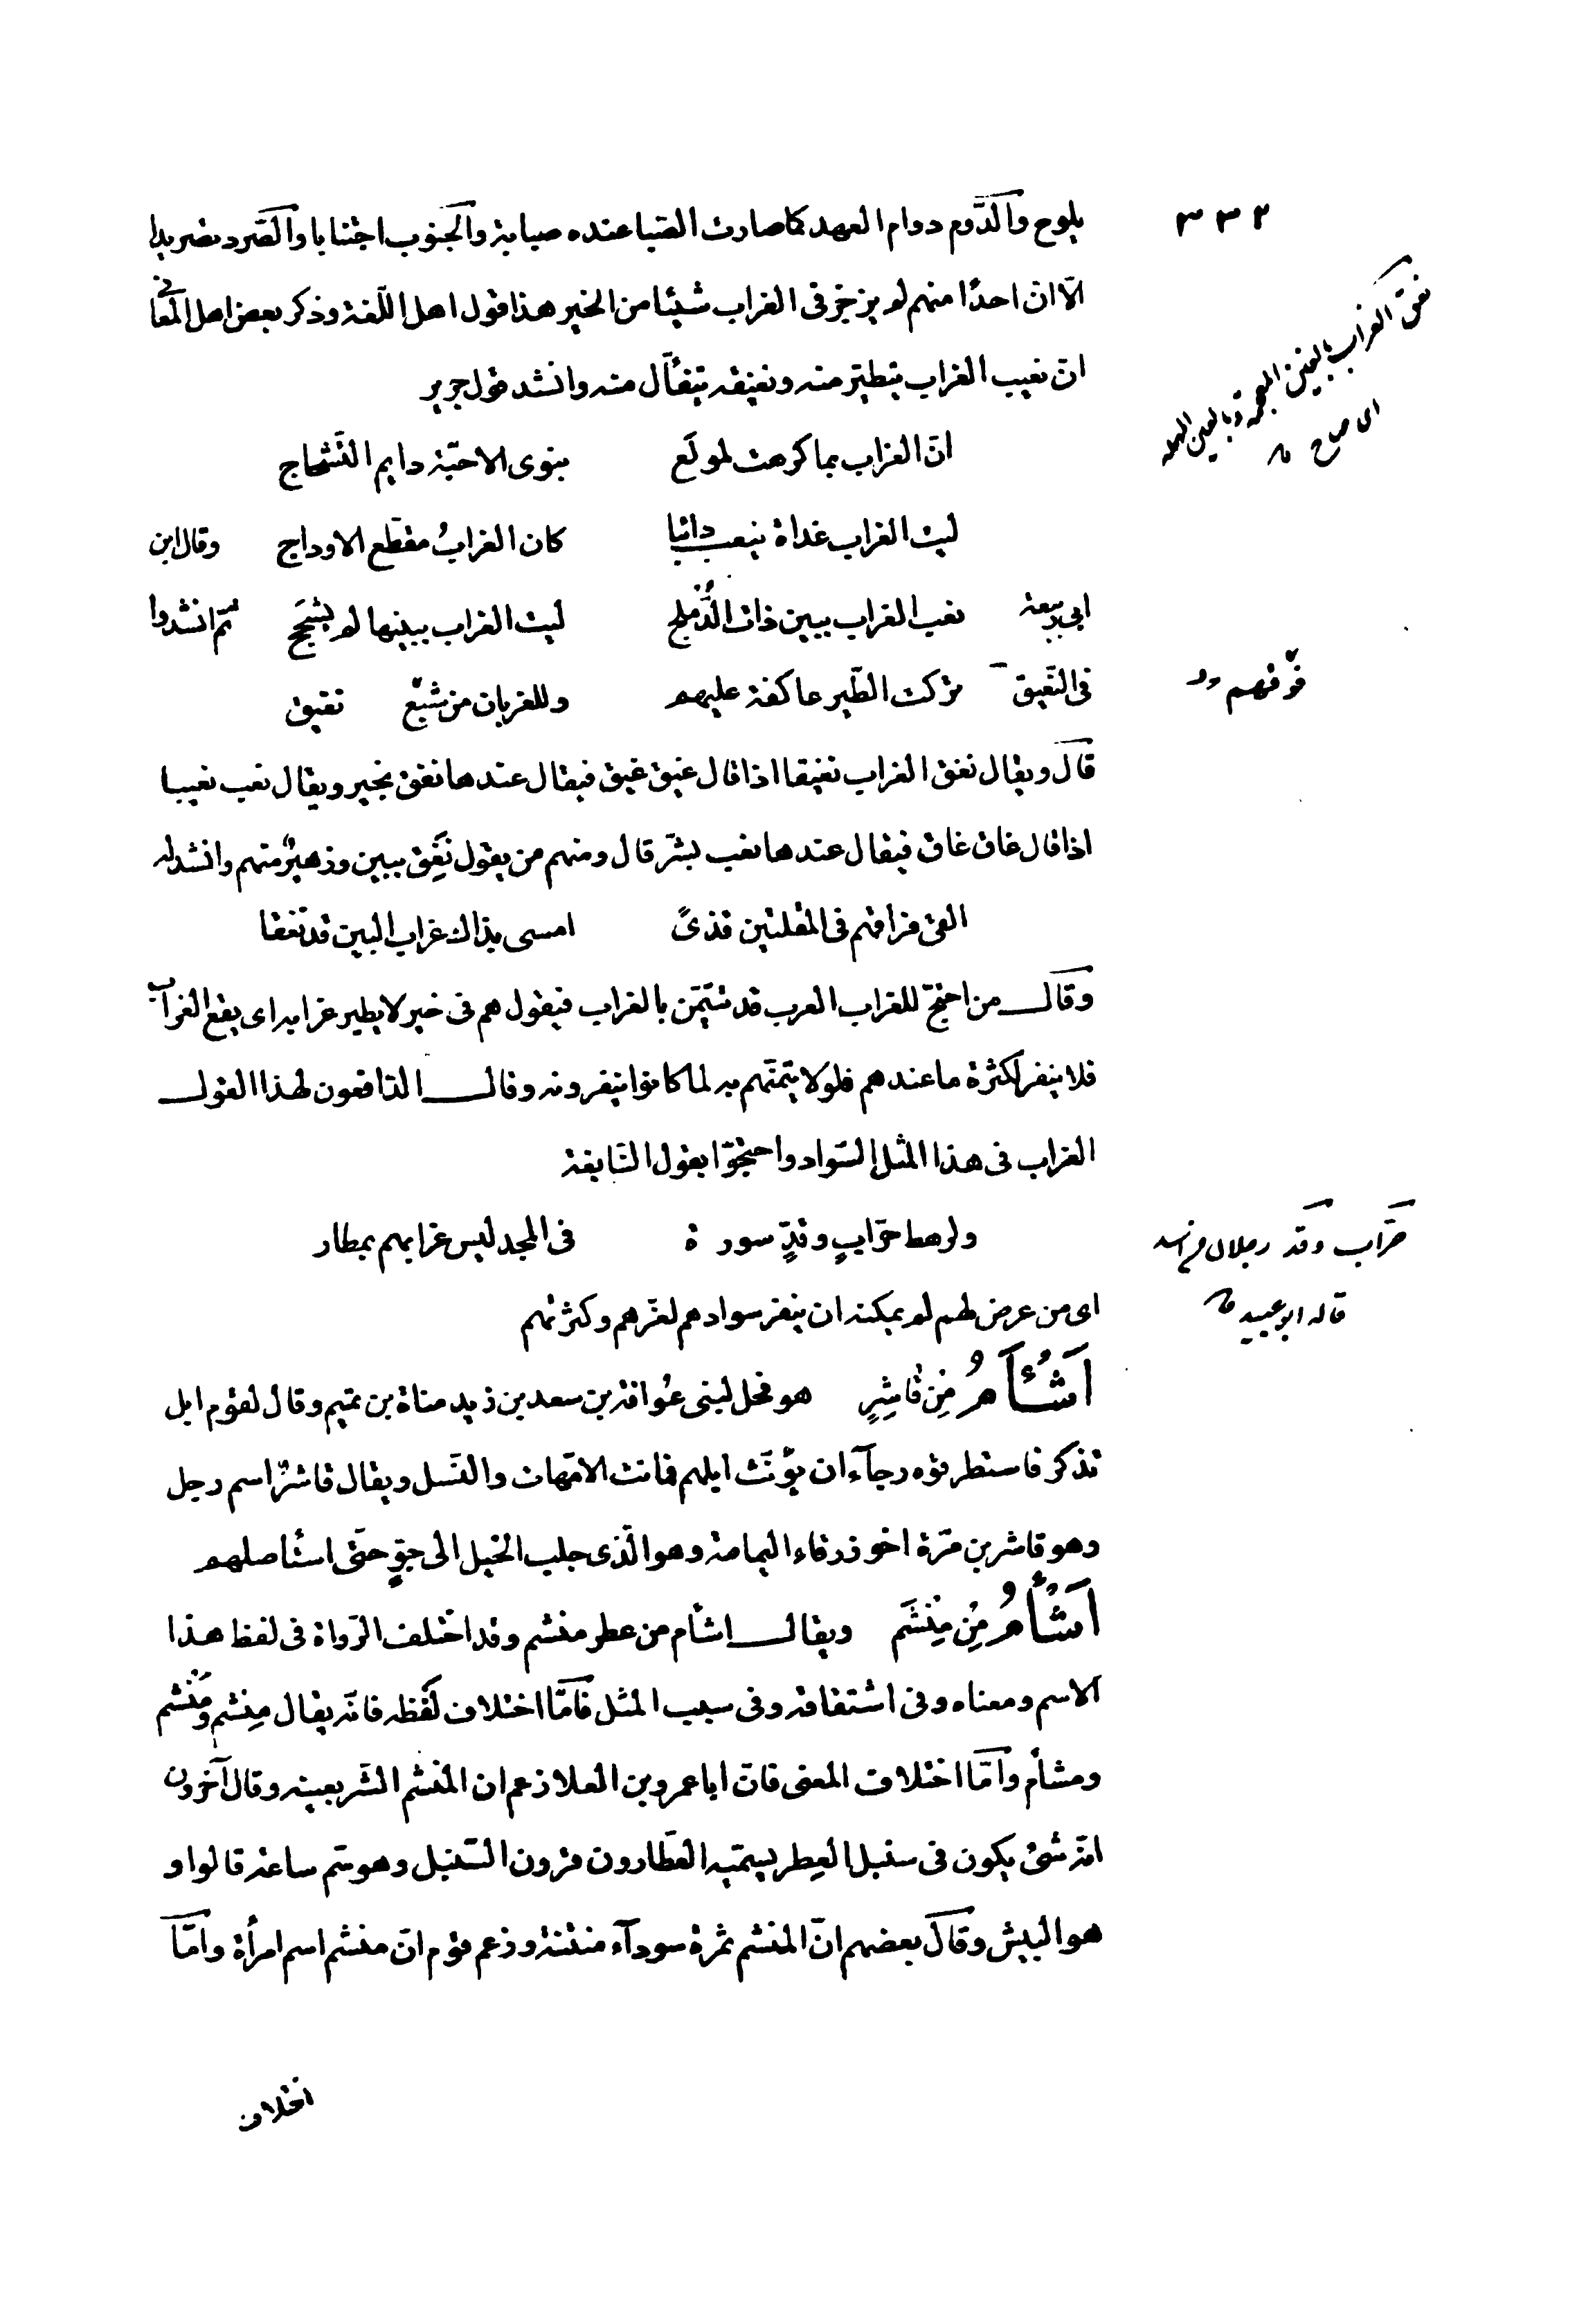 ٣٣٢
يلوح والدّوم دوام العهد كما صارت الصّبا عنده صبابة والجنوب اجتنابا والصّرد تصريدا
الّا انّ احدًا منهم لم يزجر فى الغراب شيئا من الخير هذا قول اهل اللّغة وذكر بعض اهل المعانى
انّ نعيب الغراب يتطيّر منه ونغيقه يتفأّل منه وانشد قول جرير
انّ الغراب بما كرهت لمولَع بنوى الاحبّة دايم التّشحاج
ليت الغراب غداة ينعب دائبا كان الغرابُ مقطّع الاوداج وقال ابن
ابى ربيعة نعب الغراب ببين ذات الدُّملج ليت الغراب ببينها لم يشحَج ثمّ انشدوا
فى النّغيق تركت الطّير عاكفة عليهم وللغربان من شبع نغيق
قال ويقال نغق الغراب نغيقا اذا قال غيق غيق فيقال عندها نغق بخير ويقال نعب نعيبا
اذا قال غاق غاق فيقال عندها نعب بشرّ قال ومنهم من يقول نَغَق ببين وزهيرٌ منهم وانشد له
القى فراقهم فى المقلتين قذىً امسى بذاك غراب البين قد نغقا
وقال من احتجّ للغراب العرب قد تتيمّن بالغراب فيقول هم فى خير لا يطير غرابه اى يقع الغراب
فلا ينفر لكثرة ما عندهم فلولا يتمنّهم به لما كانوا ينفرونه وقال الدّافعون لهذا القول
الغراب فى هذا المثل السّواد واحتجّوا بقول النّابغة
ولرهط حرّابٍ وقدٍّ سورة فى المجد ليس غرابهم بمطار
اى من عرض لهم لم يمكنه ان ينفر سوادهم لعزّهم وكثرتهم
اَشْأَمُ مِن قَاشِرٍ هو فحل لبنى عُوافة بن سعد بن زيد مناة بن تميم وقال لقوم ابل
تذكر فاستطرقوه رجآء ان يؤنّث ابلهم فماتت الامّهات والنّسل ويقال قاشرٌ اسم رجل
وهو قاشر بن مرّة اخو زرقاء اليمامة وهو الّذى جلب الخيل الى جوٍّ حتّى استأصلهم
اَشْأَمُ مِن مِنْشَم ويقال اشأم من عطر منشم وقد اختلف الرّواة فى لفظ هذا
الاسم ومعناه وفى اشتقاقه وفى سبب المثل فامّا اختلاف لفظه فانّه يقال مِنْشم ومَنْشم
ومشأم وامّا اختلاف المعنى فانّ ابا عمرو بن العلا زعم ان المنشم الشّر بعينه وقال آخرون
انّه شئ يكون فى سنبل العِطر يسمّيه العطّارون قرون السّنبل وهو سّم ساعة قالوا و
هو البيش وقال بعضهم انّ المنشم ثمرة سودآء منتنة وزعم قوم انّ منشم اسم امرأة وامّا
اختلاف
نغق الغراب بالغين المعجمة وبالعين المهملة
اى صاح
فوقهم
حرّاب وقدّ رجلان من اسد
قاله ابو عبيد